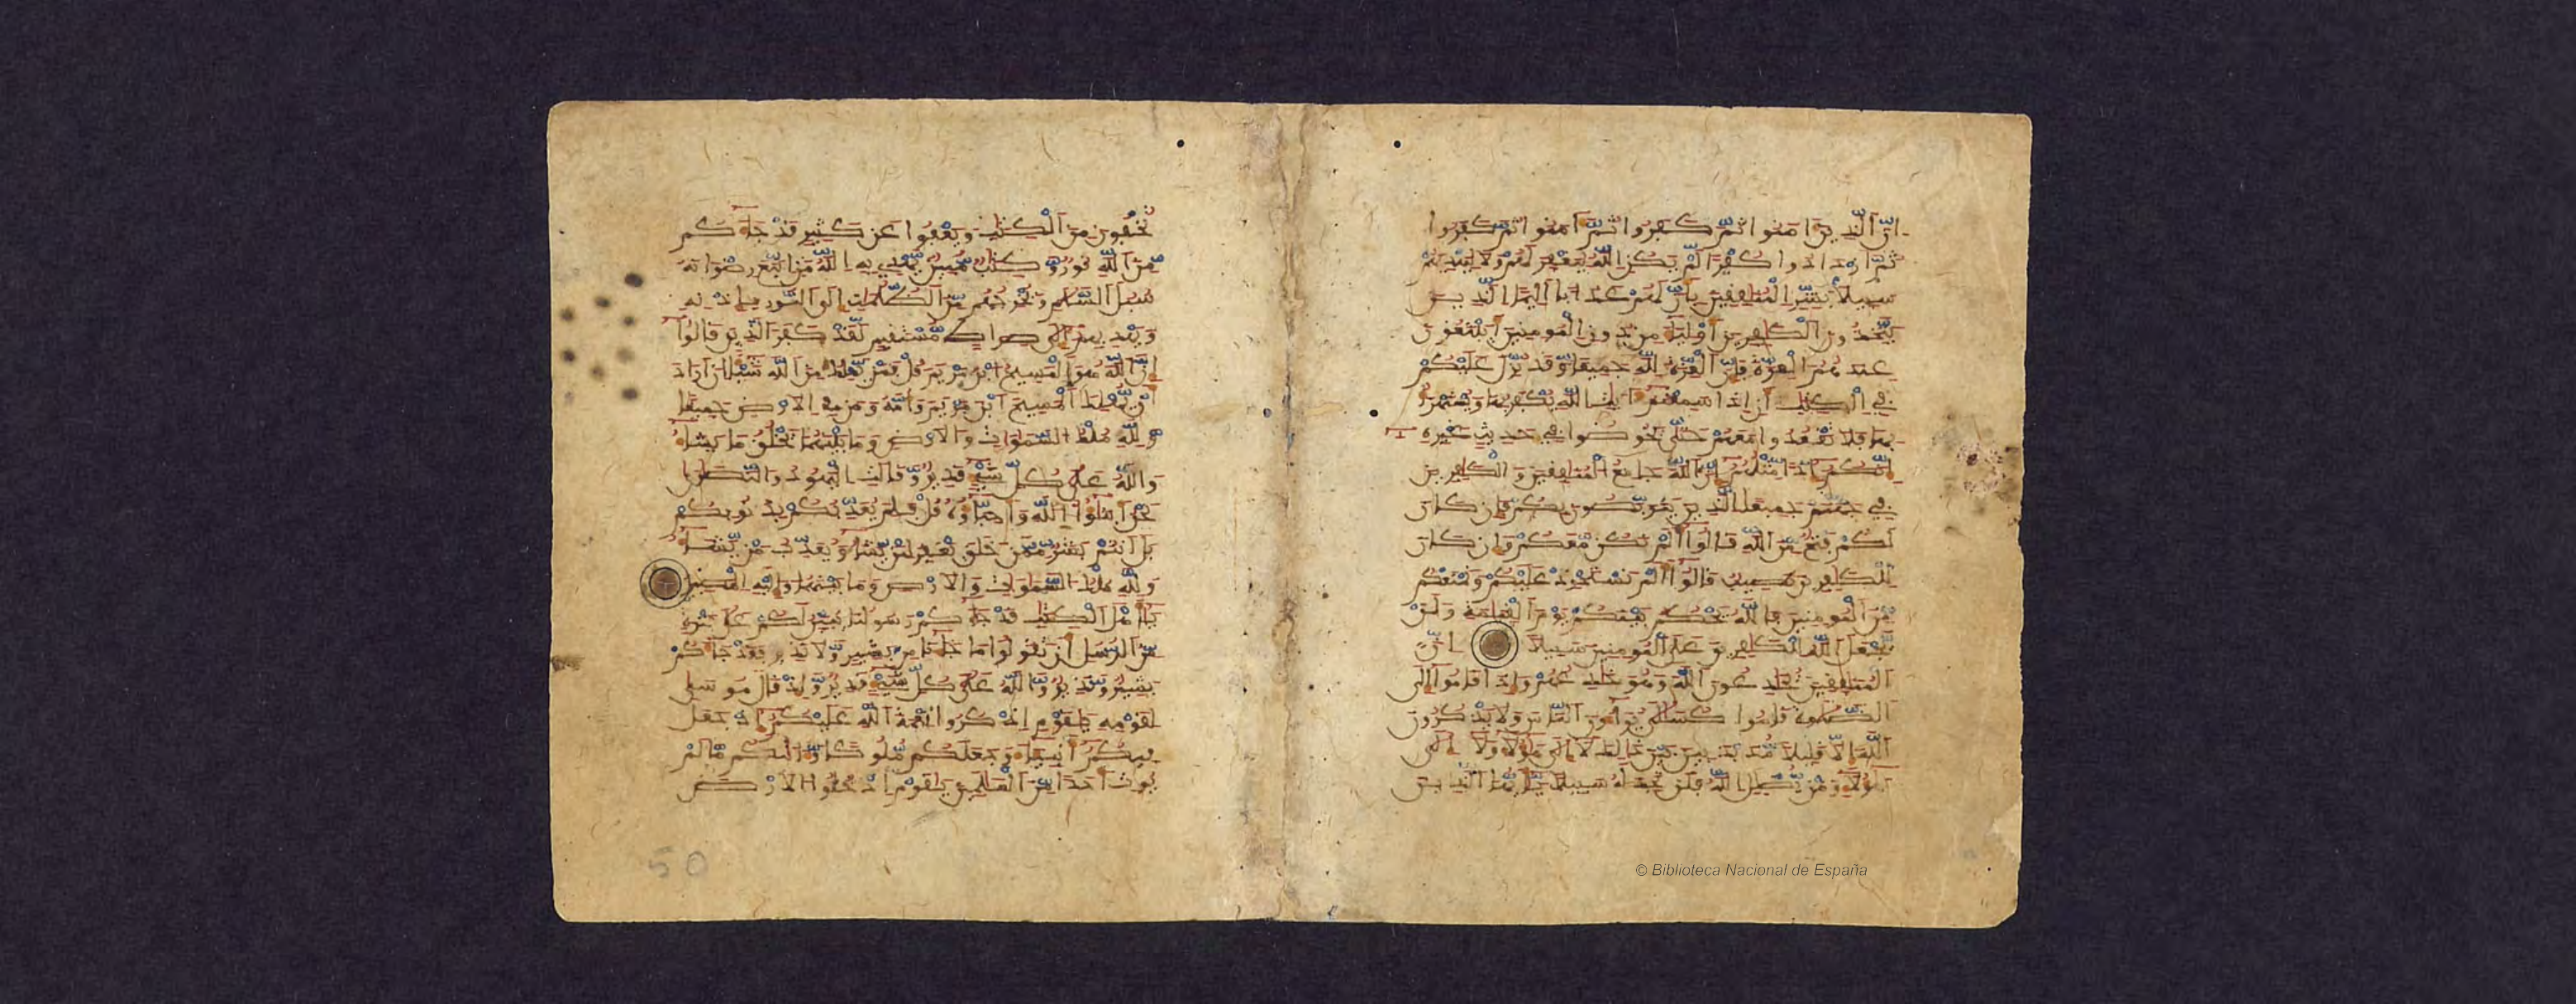 ان الذين امنوا ثم كفروا ثم امنوا ثم كفروا
ثم ازدادوا كفرا لم يكن الله ليغفر لهم ولا ليهديهم
سبيلا بشر المنفقين بان لهم عذابا اليما الذين
يتخذون الكفرين اولياء من دون المومنين ايبتغون
عندهم العزة فان العزة لله جميعا وقد نزل عليكم
في الكتب ان اذا سمعتم ءايت الله يكفر بها ويستهزا
بها فلا تقعدوا معهم حتى يخوضوا في حديث غيره
انكم اذا مثلهم ان الله جامع المنفقين والكفرين
في جهنم جميعا الذين يتربصون بكم فان كان
لكم فتح من الله قالوا الم نكن معكم وان كان
للكفرين نصيب قالوا الم نستحوذ عليكم ونمنعكم
من المومنين فالله يحكم بينكم يوم القيمة ولن
يجعل الله للكفرين على المومنين سبيلا ان
المنفقين يخدعون الله وهو خدعهم واذا قاموا الى
الصلوة قاموا كسالى يراءون الناس ولا يذكرون
الله الا قليلا مذبذبين بين ذلك لا الى هولاء ولا الى
هولاء ومن يضلل الله فلن تجد له سبيلا يايها الذين
تخفون من الكتب ويعفوا عن كثير قد جاءكم
من الله نور وكتب مبين يهدي به الله من اتبع رضونه
سبل السلم ويخرجهم من الظلمت الى النور باذنه
ويهديهم الى صراط مستقيم لقد كفر الذين قالوا
ان الله هو المسيح ابن مريم قل فمن يملك من الله شيئا ان اراد
ان يهلك المسيح ابن مريم وامه ومن في الارض جميعا
ولله ملك السموات والارض وما بينهما يخلق ما يشاء
والله على كل شيء قدير وقالت اليهود والنصرى
نحن ابنوا الله واحبوه قل فلم يعذبكم بذنوبكم
بل انتم بشر ممن خلق يغفر لمن يشاء ويعذب من يشاء
ولله ملك السموات والارض وما بينهما واليه المصير
ياهل الكتب قد جاءكم رسولنا يبين لكم على فترة
من الرسل ان تقولوا ما جاءنا من بشير ولا نذير فقد جاءكم
بشير ونذير والله على كل شيء قدير واذ قال موسى
لقومه يقوم اذكروا نعمة الله عليكم اذ جعل
فيكم انبياء وجعلكم ملوكا وءاتىكم ما لم
يوت احدا من العلمين يقوم ادخلوا الارض
50
© Biblioteca Nacional de España